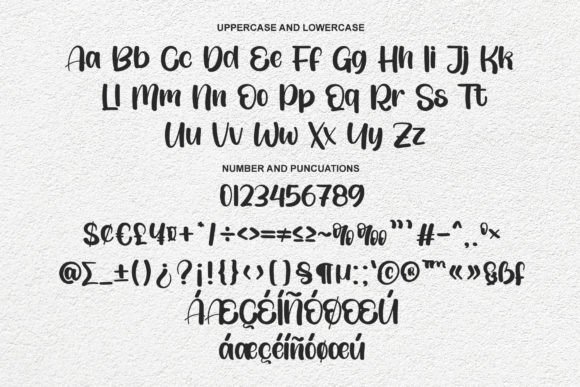 UPPERCASE AND LOWERCASE
Aa Bb Cc Dd Ee Ff Gg Hh Ii Jj Kk
Ll Mm Nn Oo Pp Qq Rr Ss Tt
Uu Vv Ww Xx Yy Zz
NUMBER AND PUNCUATIONS
0123456789
$¢€£¥¤+*/÷<>=≠≤≥~%‰"'#-^,.°×
@∑_±()¿?¡!{}‹›[]§¶µ:;'©®™«»§ßf
ÁÆÇÉÍÑÓØŒÚ
áæçéíñóøœú